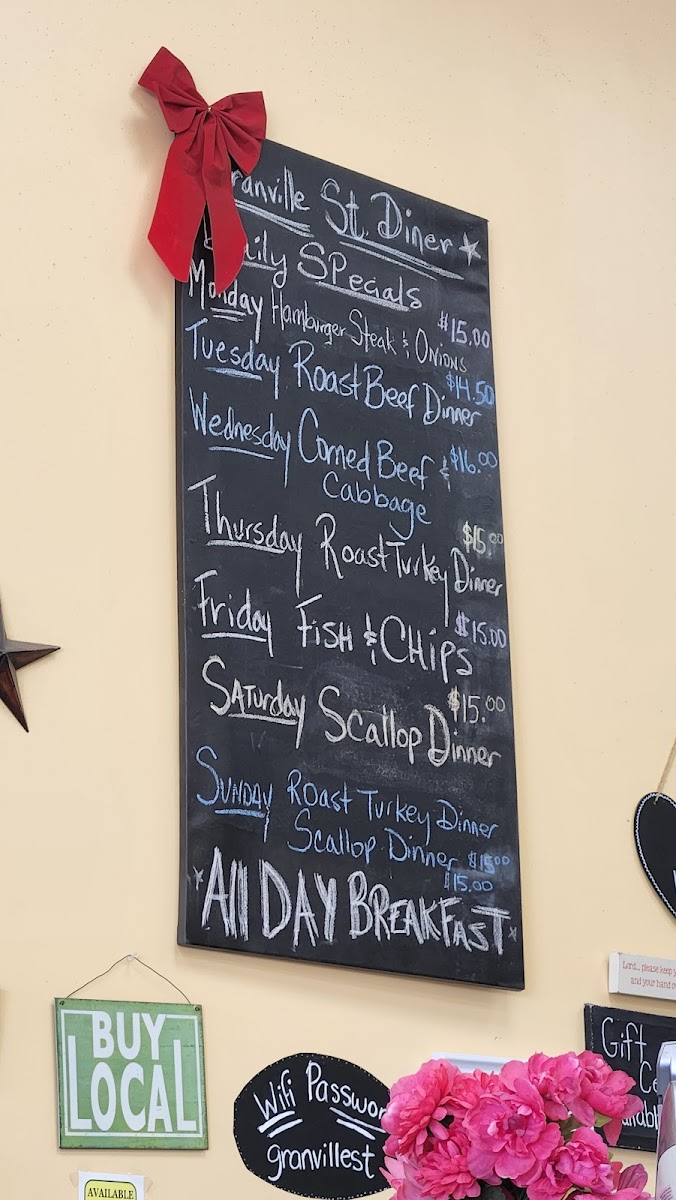 ranville St. Diner
ily Specials
Monday Hamburger Steak & Onions $15.00
Tuesday Roast Beef Dinner $14.50
Wednesday Corned Beef & $16.00
Cabbage
Thursday Roast Turkey Dinner $15.00
Friday Fish & Chips $15.00
Saturday Scallop Dinner $15.00
Sunday Roast Turkey Dinner
Scallop Dinner $15.00
$15.00
All DAY BREAKFAST
BUY
LOCAL
Wifi Passwor
granvillest
Lord... please keep y
and your hand o
Gift
AVAILABLE